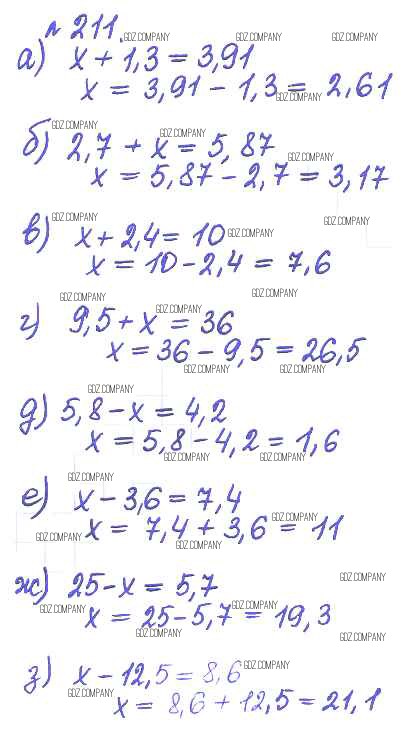 № 211.
GDZ.COMPANY GDZ.COMPANY GDZ.COMPANY
а) x + 1,3 = 3,91
x = 3,91 - 1,3 = 2,61
GDZ.COMPANY
GDZ.COMPANY GDZ.COMPANY
б) 2,7 + x = 5,87
GDZ.COMPANY
x = 5,87 - 2,7 = 3,17
GDZ.COMPANY GDZ.COMPANY
в) x + 2,4 = 10 GDZ.COMPANY
x = 10 - 2,4 = 7,6
GDZ.COMPANY GDZ.COMPANY
GDZ.COMPANY
г) 9,5 + x = 36
x = 36 - 9,5 = 26,5
GDZ.COMPANY GDZ.COMPANY
GDZ.COMPANY
д) 5,8 - x = 4,2
x = 5,8 - 4,2 = 1,6
GDZ.COMPANY GDZ.COMPANY
GDZ.COMPANY
е) x - 3,6 = 7,4
GDZ.COMPANY
x = 7,4 + 3,6 = 11
GDZ.COMPANY GDZ.COMPANY
GDZ.COMPANY
ж) 25 - x = 5,7
GDZ.COMPANY GDZ.COMPANY
x = 25 - 5,7 = 19,3
GDZ.COMPANY GDZ.COMPANY
з) x - 12,5 = 8,6 GDZ.COMPANY
GDZ.COMPANY
x = 8,6 + 12,5 = 21,1